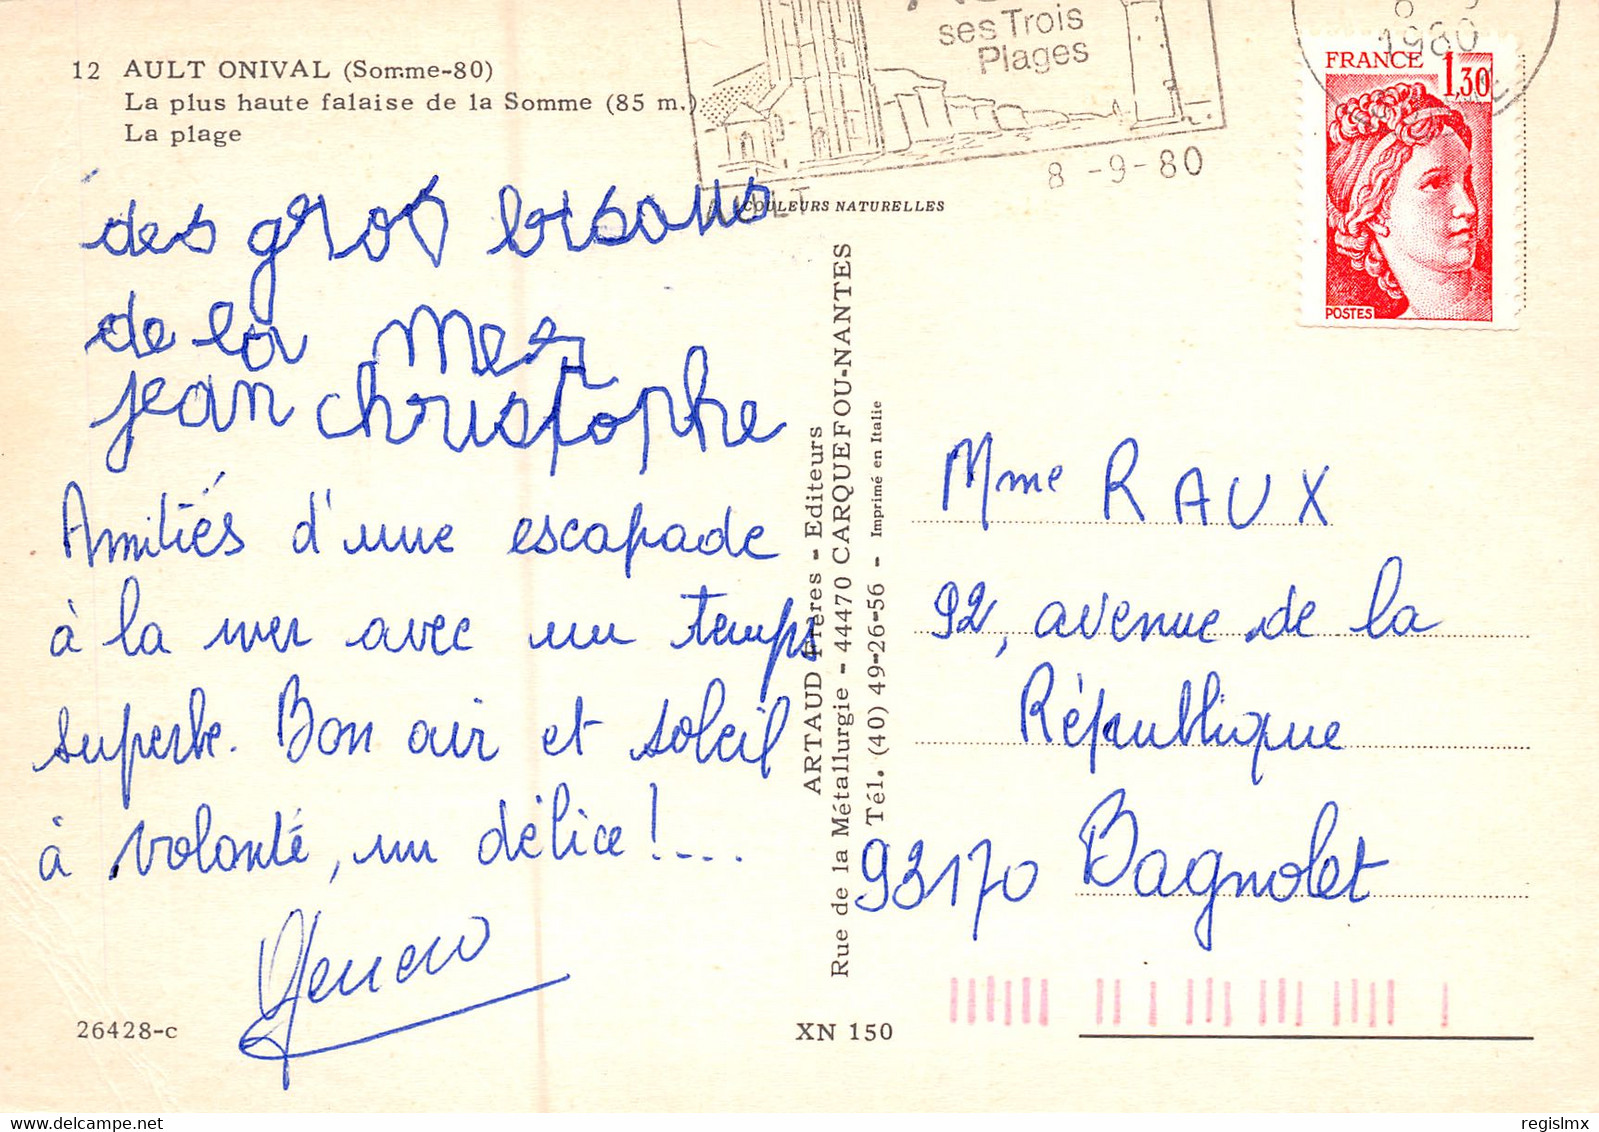 12 AULT ONIVAL (Somme-80)
La plus haute falaise de la Somme (85 m.)
La plage
ses Trois
Plages
8 -9-80
AULT
1980
FRANCE 1,30
POSTES
COULEURS NATURELLES
des gros bisous
de la mer
jean christophe
Amitiés d'une escapade
à la mer avec un temps
superbe. Bon air et soleil
à volonté, un délice !....
ARTAUD Frères - Editeurs
Rue de la Métallurgie - 44470 CARQUEFOU-NANTES
Tél. (40) 49-26-56 - Imprimé en Italie
Mme RAUX
92, avenue de la
République
93170 Bagnolet
26428-c
XN 150
regislmx